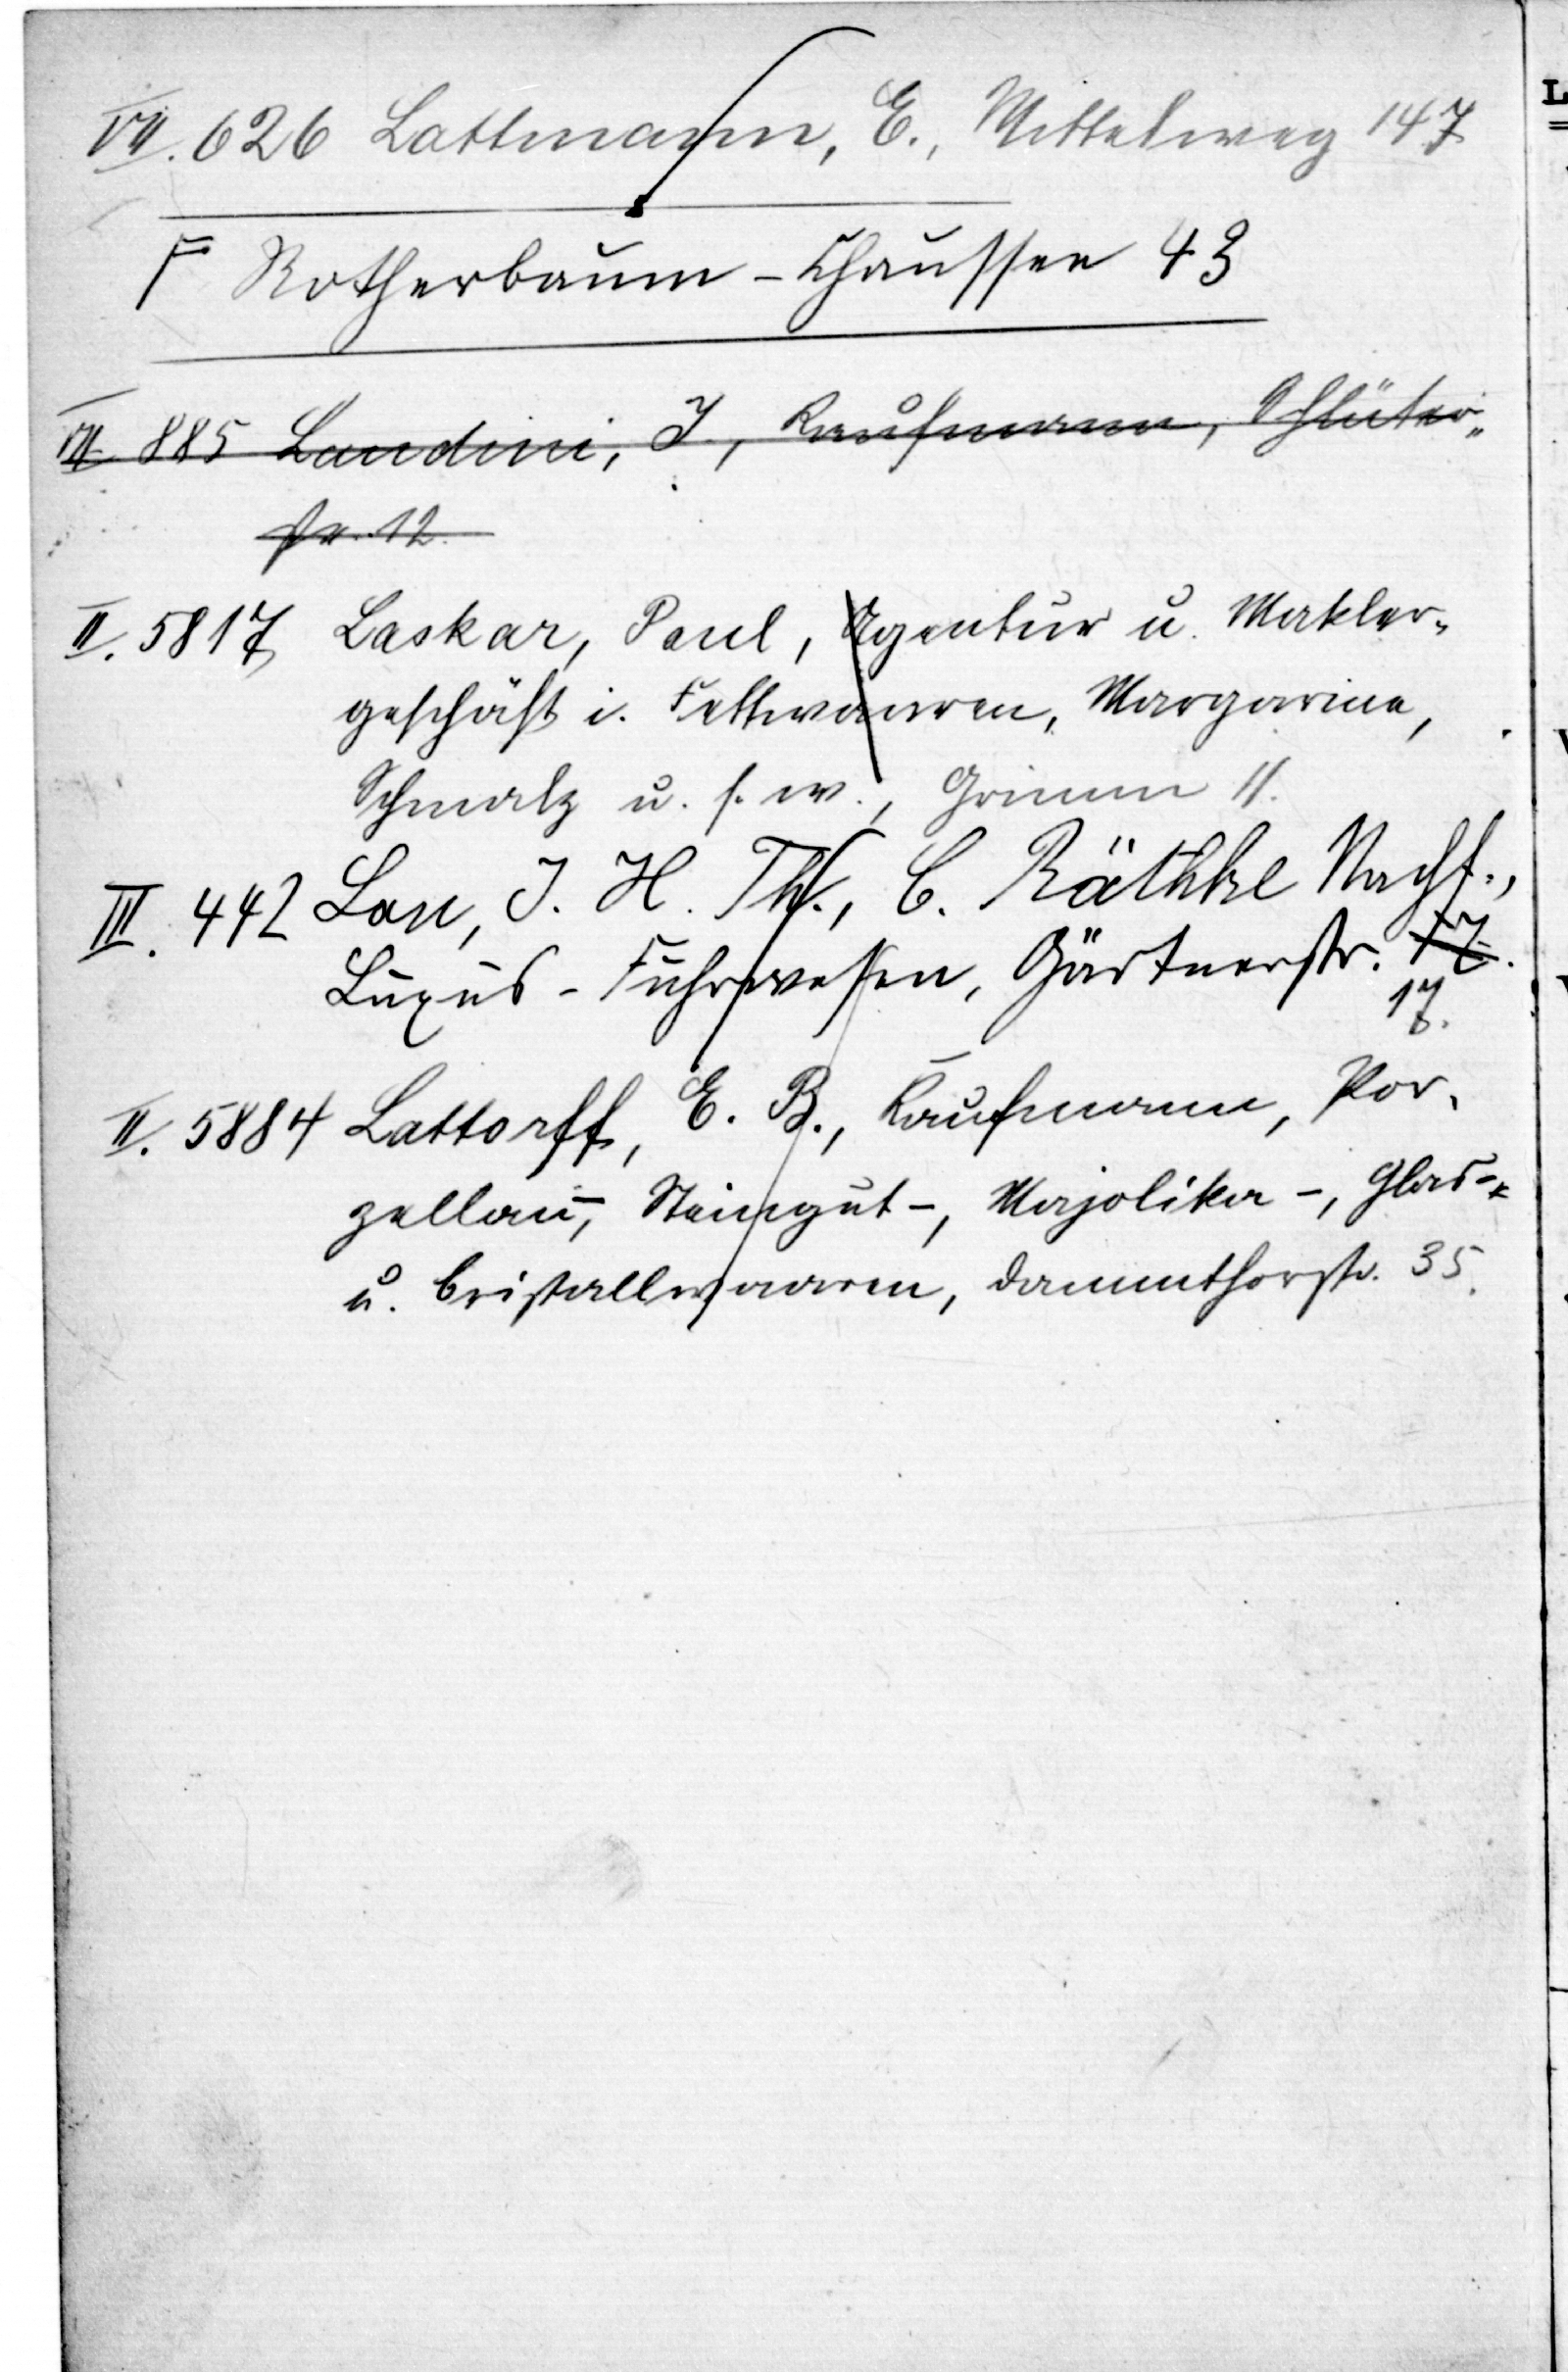 VII. 626 Lattmann, E., Mittelweg 147
Rotherbaum-Chaussee 43
VII 885 Landini, J., Kaufmann, Schlüter-
str. 12.
II. 5817 Laskar, Paul, Agentur u. Makler-
geschäft i. Fettwaaren, Margarine,
Schmalz u. s. w., Grimm 11.
III. 442 Lau, J. H. Th., C. Räthke Nachf.,
Luxus-Fuhrwesen, Gärtnerstr. 17.
17.
II. 5884 Lattorff, E. B., Kaufmann, Por-
zellan-, Steingut-, Majolika-, Glas-
u. Cristallwaaren, Dammthorstr. 35.
L